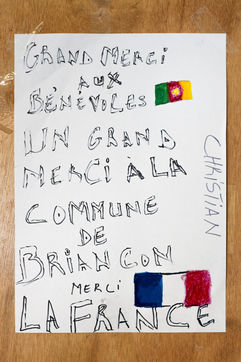 GRAND MERCI
AUX
BÉNÉVOLES
UN GRAND
MERCI À LA
COMMUNE
DE
BRIANCON
MERCI
LA FRANCE
CHRISTIAN